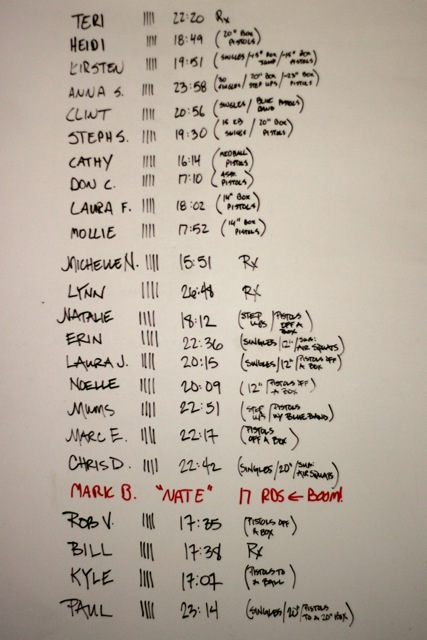 TERI |||| 22:20 Rx
HEIDI |||| 18:49 (20" BOX PISTOLS)
KIRSTEN |||| 19:51 (SINGLES/15" BOX JUMP/15" BOX PISTOLS)
ANNA S. |||| 23:58 (SINGLES/20" BOX STEP UPS/~23" BOX PISTOLS)
CLINT |||| 20:56 (SINGLES/BLUE BAND PISTOLS)
STEPH S. |||| 19:30 (16 KB SWINGS/20" BOX PISTOLS)
CATHY |||| 16:14 (MEDBALL PISTOLS)
DON C. |||| 17:10 (ASSIS PISTOLS)
LAURA F. |||| 18:02 (14" BOX PISTOLS)
MOLLIE |||| 17:52 (14" BOX PISTOLS)
MICHELLE N. |||| 15:51 Rx
LYNN |||| 26:48 Rx
NATALIE |||| 18:12 (STEP UPS/PISTOLS OFF A BOX)
ERIN |||| 22:36 (SINGLES/12"/SUB: AIR SQUATS)
LAURA J. |||| 20:15 (SINGLES/12"/PISTOLS OFF A BOX)
NOELLE |||| 20:09 (12"/PISTOLS OFF A BOX)
MUMS |||| 22:51 (STEP UPS/PISTOLS W/ BLUE BAND)
MARC E. |||| 22:17 (PISTOLS OFF A BOX)
CHRIS D. |||| 22:42 (SINGLES/20"/SUB: AIR SQUATS)
MARK B. "NATE" 17 RDS ← BOOM!
ROB V. |||| 17:35 (PISTOLS OFF A BOX)
BILL |||| 17:38 Rx
KYLE |||| 17:07 (PISTOLS TO A BALL)
PAUL |||| 23:14 (SINGLES/20"/PISTOLS TO A 20" BOX)